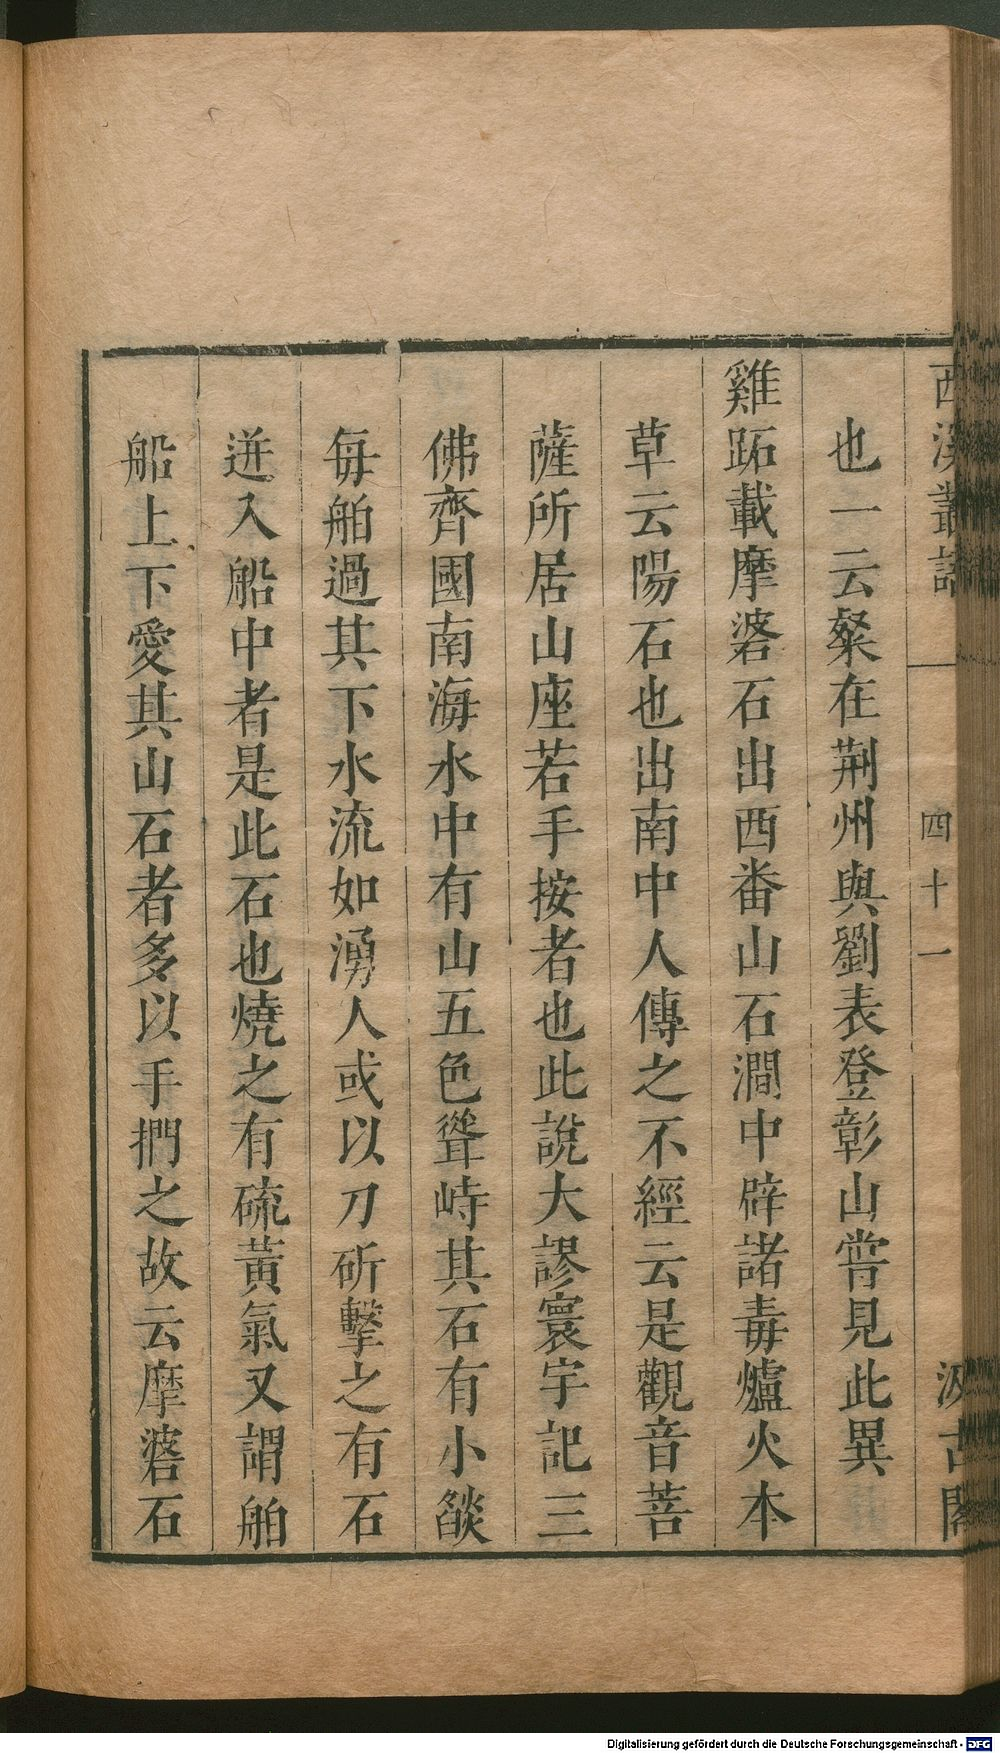 西溪叢語 四十一 汲古閣
也一云粲在荆州與劉表登彰山嘗見此異
雞跖載摩婆石出西畨山石澗中辟諸毒爐火本
草云陽石也出南中人傳之不經云是觀音菩
薩所居山座若手按者也此説大謬寰宇記三
佛齊國南海水中有山五色聳峙其石有小燄
每舶過其下水流如湧人或以刀斫擊之有石
迸入船中者是此石也燒之有硫黃氣又謂舶
船上下愛其山石者多以手捫之故云摩婆石
Digitalisierung gefördert durch die Deutsche Forschungsgemeinschaft - DFG